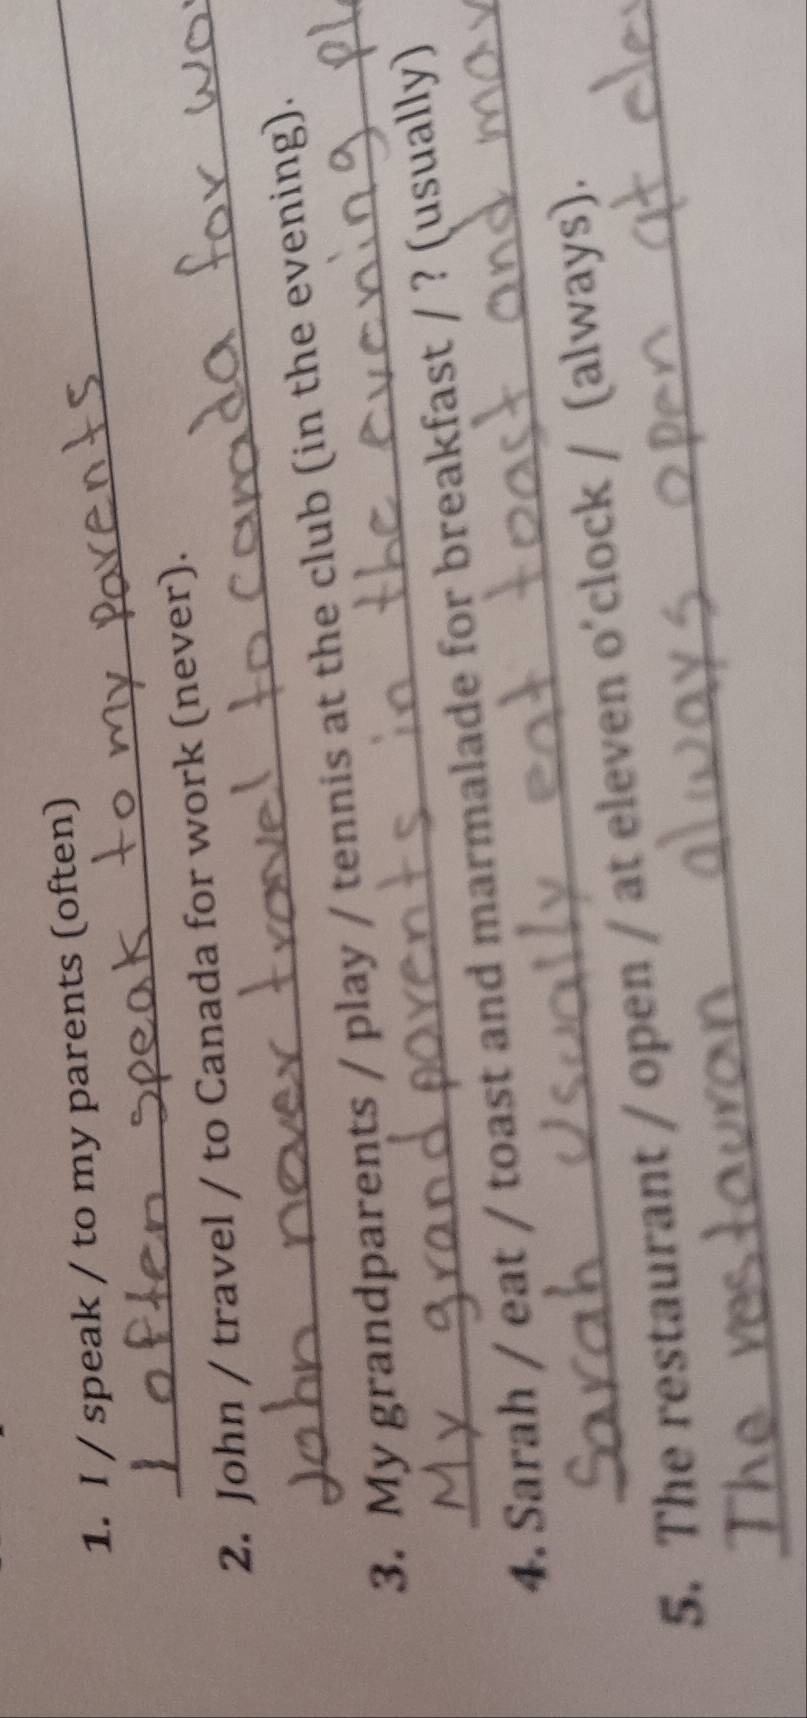 1. I / speak / to my parents (often)
I often speak to my parents
2. John / travel / to Canada for work (never).
John never travel to canada for
3. My grandparents / play / tennis at the club (in the evening).
My grand parents in the evening
4. Sarah / eat / toast and marmalade for breakfast / ? (usually)
Sarah usually eat toast and
5. The restaurant / open / at eleven o'clock / (always).
The restauran always open at